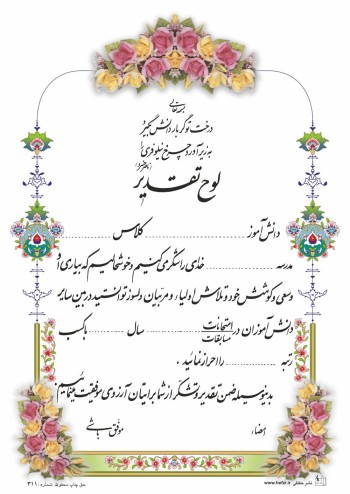 بسمه تعالی
درخت تو گر بار دانش بگیرد
به زیر آوری چرخ نیلوفری را
لوح تقدیر
دانش آموز .................... کلاس ....................
مدرسه .................... خدای را شکر می کنیم و خوشحالیم که به یاری او
وسعی و کوشش خود و تلاش اولیاء و مربیان دلسوز توانستید در بین سایر
دانش آموزان در امتحانات مسابقات .......... سال .......... با کسب
رتبه .................... را احراز نمائید .
بدینوسیله ضمن تقدیر و تشکر از شما برایتان آرزوی موفقیت می نمائیم.
امضاء
موفق باشی
نشر حافظی www.hefzi.ir
حق چاپ محفوظ. شماره: ۳۱۱